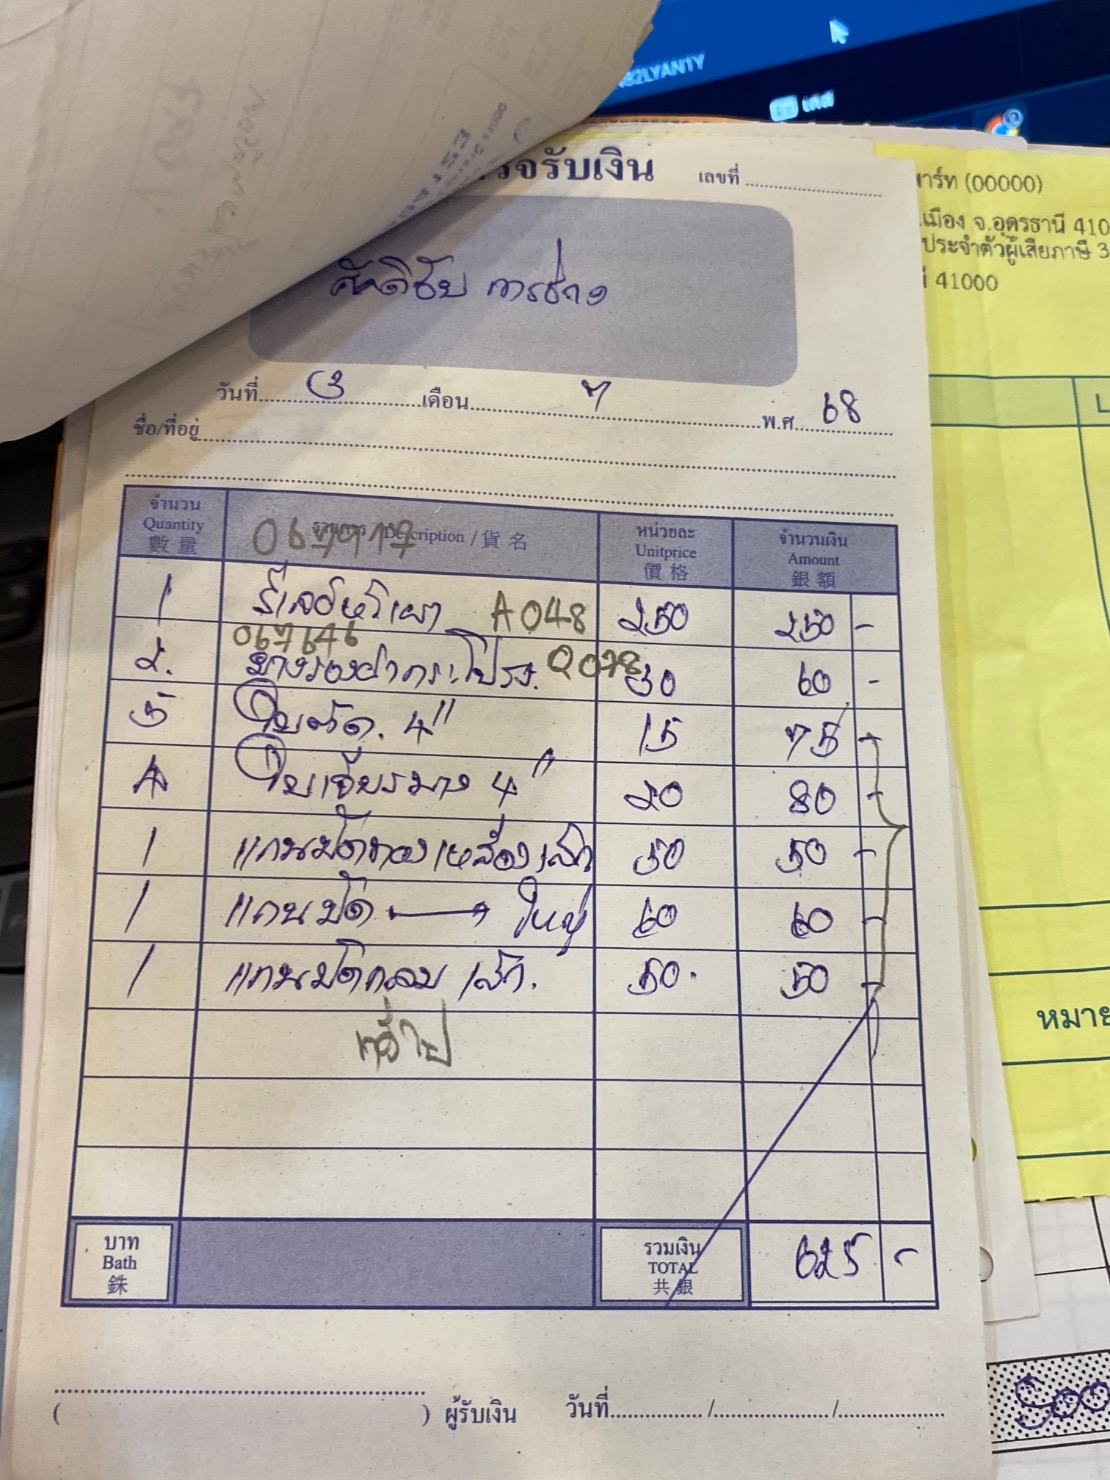 N82LYAN1Y
เดส
รับเงิน เลขที่
ศักดิชัย การช่าง
วันที่ 3 เดือน 7 พ.ศ. 68
ชื่อ/ที่อยู่
จำนวน Quantity 數量 รายการ Description / 貨名 หน่วยละ Unitprice 價格 จำนวนเงิน Amount 銀額
1 A048 250 250 -
067646
2. ยางรองฝากระโปรง. 30 60 -
5 ใบตัด. 4" 15 75 -
4 ใบเจียรบาง 4" 20 80 -
1 แกนขัดทองเหลืองเล็ก 50 50 -
1 แกนขัด ใหญ่ 60 60 -
1 แกนขัดกลม เล็ก. 50. 50 -
ทั่วไป
บาท Bath 銖 รวมเงิน TOTAL 共銀 625 -
( ) ผู้รับเงิน วันที่ / /
าร์ท (00000)
.เมือง จ.อุดรธานี 410
ประจำตัวผู้เสียภาษี 3
41000
หมาย